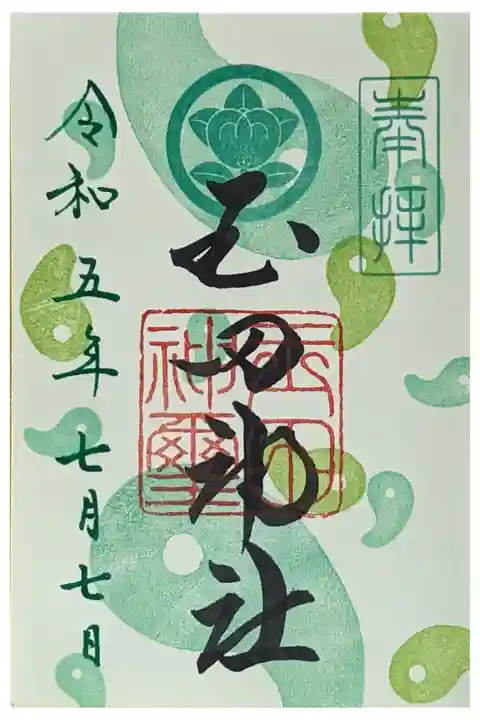 奉拝
玉田神社
玉田神璽
令和五年七月七日